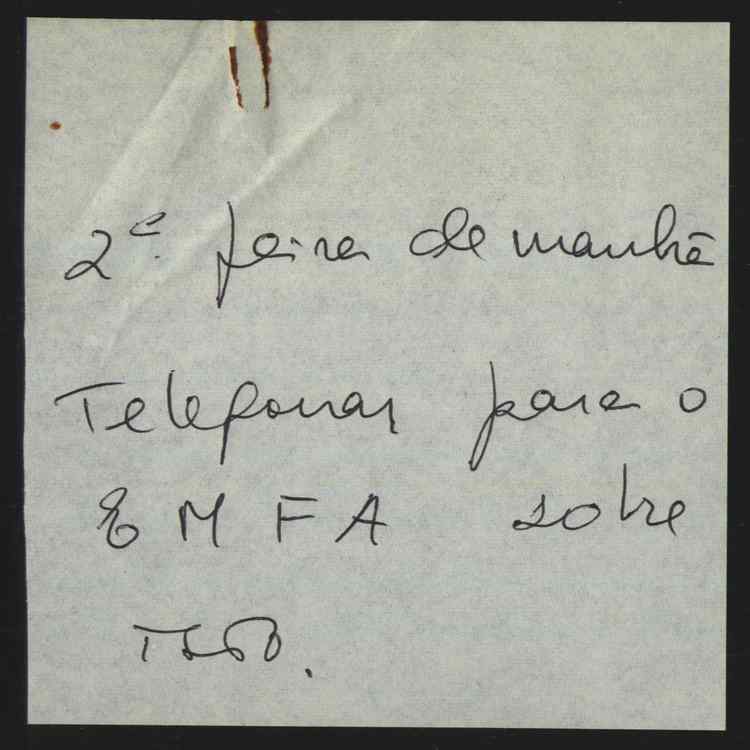 2ª feira de manhã
Telefonar para o
EMFA sobre